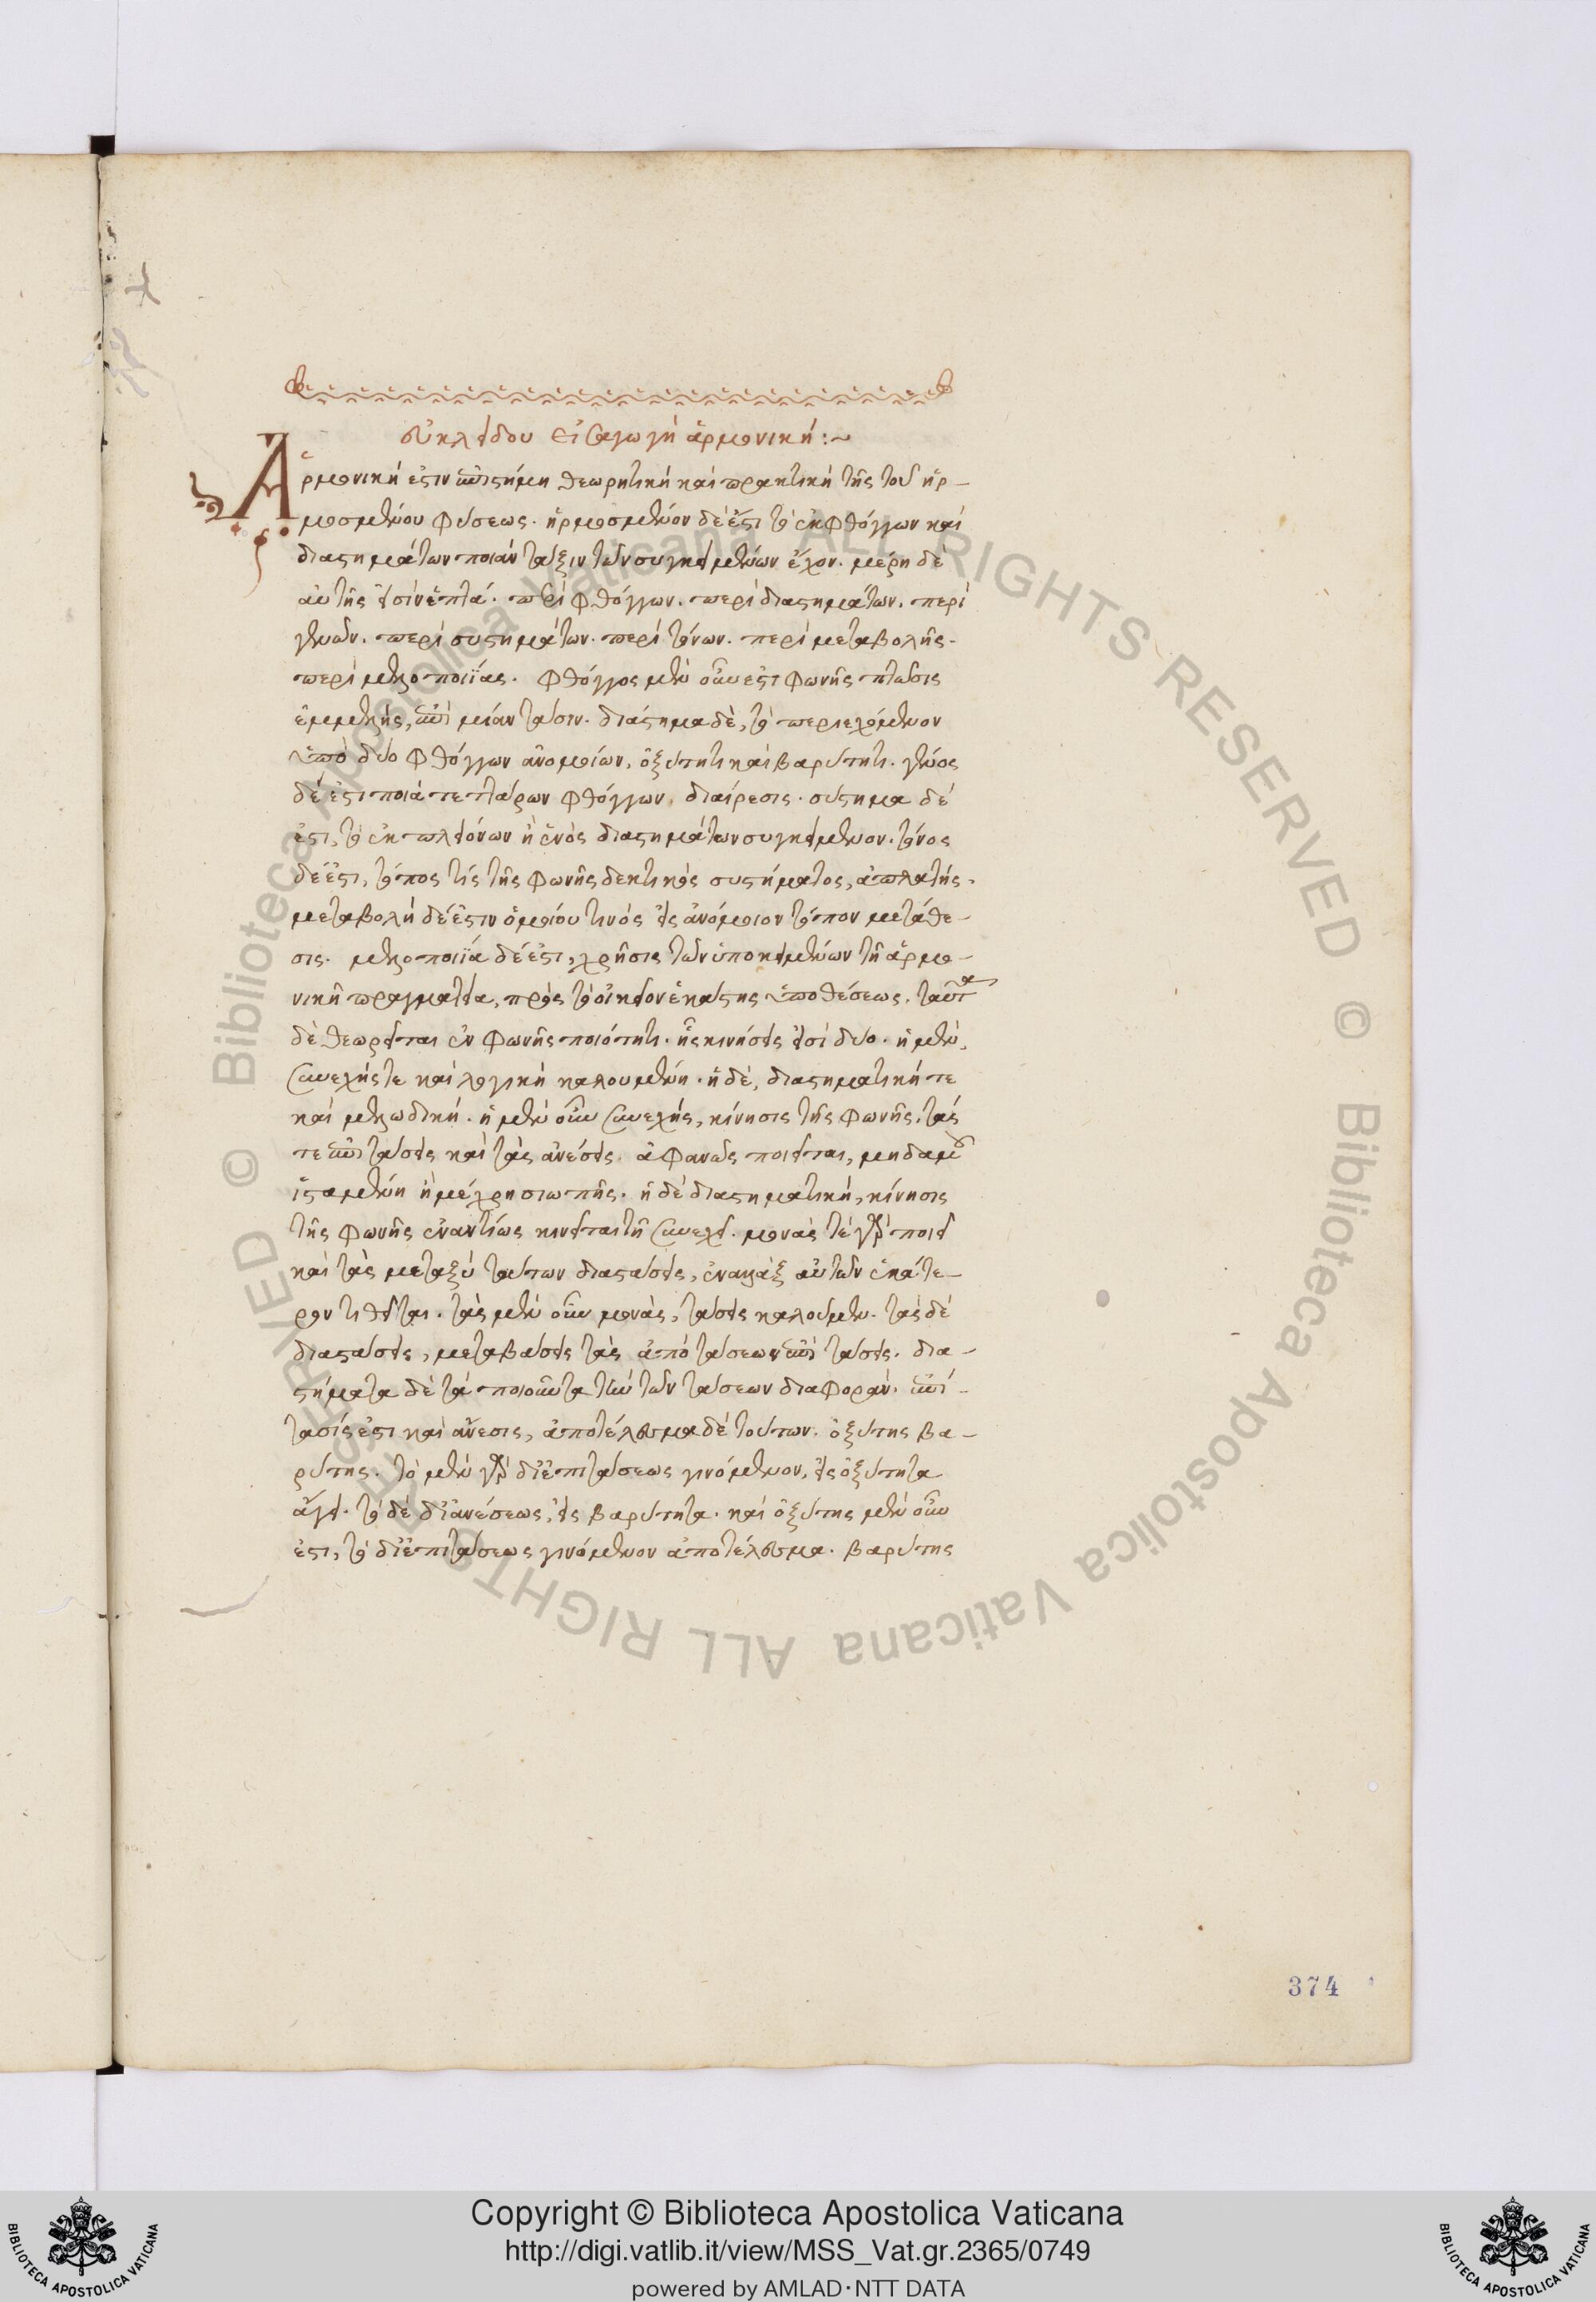 εὐκλείδου εἰσαγωγὴ ἁρμονική :~
Ἁρμονική ἐστιν ἐπιστήμη θεωρητικὴ καὶ πρακτικὴ τῆς τοῦ ἡρ-
μοσμένου φύσεως. ἡρμοσμένον δέ ἐστι τὸ ἐκ φθόγγων καὶ
διαστημάτων ποιὰν τάξιν τῶν συγκειμένων ἔχον. μέρη δὲ
αὐτῆς εἰσὶν ἑπτά. περὶ φθόγγων. περὶ διαστημάτων. περὶ
γενῶν. περὶ συστημάτων. περὶ τόνων. περὶ μεταβολῆς.
περὶ μελοποιΐας. φθόγγος μὲν οὖν ἐστι φωνῆς πτῶσις
ἐμμελής, ἐπὶ μίαν τάσιν. διάστημα δὲ, τὸ περιεχόμενον
ὑπὸ δύο φθόγγων ἀνομοίων, ὀξύτητι καὶ βαρύτητι. γένος
δέ ἐστι ποιὰ τεττάρων φθόγγων, διαίρεσις. σύστημα δέ
ἐστι, τὸ ἐκ πλειόνων ἢ ἑνὸς διαστημάτων συγκείμενον. τόνος
δέ ἐστι, τόπος τίς τῆς φωνῆς δεκτικὸς συστήματος, ἀπλατής.
μεταβολὴ δέ ἐστιν ὁμοίου τινὸς εἰς ἀνόμοιον τόπον μετάθε-
σις. μελοποιΐα δέ ἐστι, χρῆσις τῶν ὑποκειμένων τῇ ἁρμο-
νικῇ πραγματεία, πρὸς τὸ οἰκεῖον ἑκάστης ὑποθέσεως. ταῦτα
δὲ θεωρεῖται ἐν φωνῆς ποιότητι. ἧς κινήσεις εἰσὶ δύο. ἡ μὲν,
συνεχής τε καὶ λογικὴ καλουμένη. ἡ δὲ, διαστηματική τε
καὶ μελωδική. ἡ μὲν οὖν συνεχὴς, κίνησις τῆς φωνῆς, τάς
τε ἐπιτάσεις καὶ τὰς ἀνέσεις ἀφανῶς ποιεῖται, μηδαμοῦ
ἱσταμένη ἢ μέχρη σιωπῆς. ἡ δὲ διαστηματικὴ, κίνησις
τῆς φωνῆς ἐναντίως κινεῖται τῇ συνεχεῖ. μονάς τε γὰρ ποιεῖ
καὶ τὰς μεταξὺ τούτων διαστάσεις, ἐναλλὰξ αὐτῶν ἑκάτε-
ρον τιθεῖται. τὰς μὲν οὖν μονὰς, τάσεις καλοῦμεν. τὰς δὲ
διαστάσεις, μεταβάσεις τὰς ἀπὸ τάσεων ἐπὶ τάσεις. δια-
στήματα δὲ τὰ ποιοῦντα τὴν τῶν τάσεων διαφορὰν. ἐπί-
τασίς ἐστι καὶ ἄνεσις, ἀποτέλεσμα δὲ τούτων. ὀξύτης βα-
ρύτης. τὸ μὲν γὰρ δι' ἐπιτάσεως γινόμενον, εἰς ὀξύτητα
ἄγει. τὸ δὲ δι' ἀνέσεως, εἰς βαρύτητα. καὶ ὀξύτης μὲν οὖν
ἐστι, τὸ δι' ἐπιτάσεως γινόμενον ἀποτέλεσμα. βαρύτης
374
Copyright © Biblioteca Apostolica Vaticana
http://digi.vatlib.it/view/MSS_Vat.gr.2365/0749
powered by AMLAD·NTT DATA
BIBLIOTECA APOSTOLICA VATICANA
BIBLIOTECA APOSTOLICA VATICANA
© Biblioteca Apostolica Vaticana ALL RIGHTS RESERVED © Biblioteca Apostolica Vaticana ALL RIGHTS RESERVED